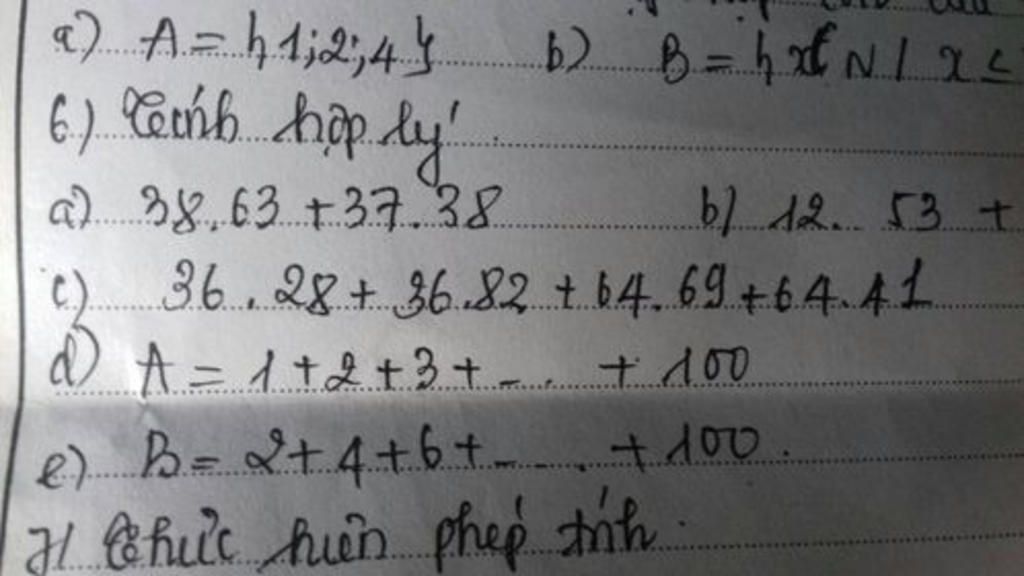 a) A = { 1; 2; 4 } b) B = { x ∈ N / x ≤
6) Tính hợp lý
a) 38.63 + 37.38 b) 12. 53 +
c) 36 . 28 + 36.82 + 64.69 + 64.41
d) A = 1 + 2 + 3 + ... + 100
e) B = 2 + 4 + 6 + .... + 100.
7) Thực hiện phép tính.